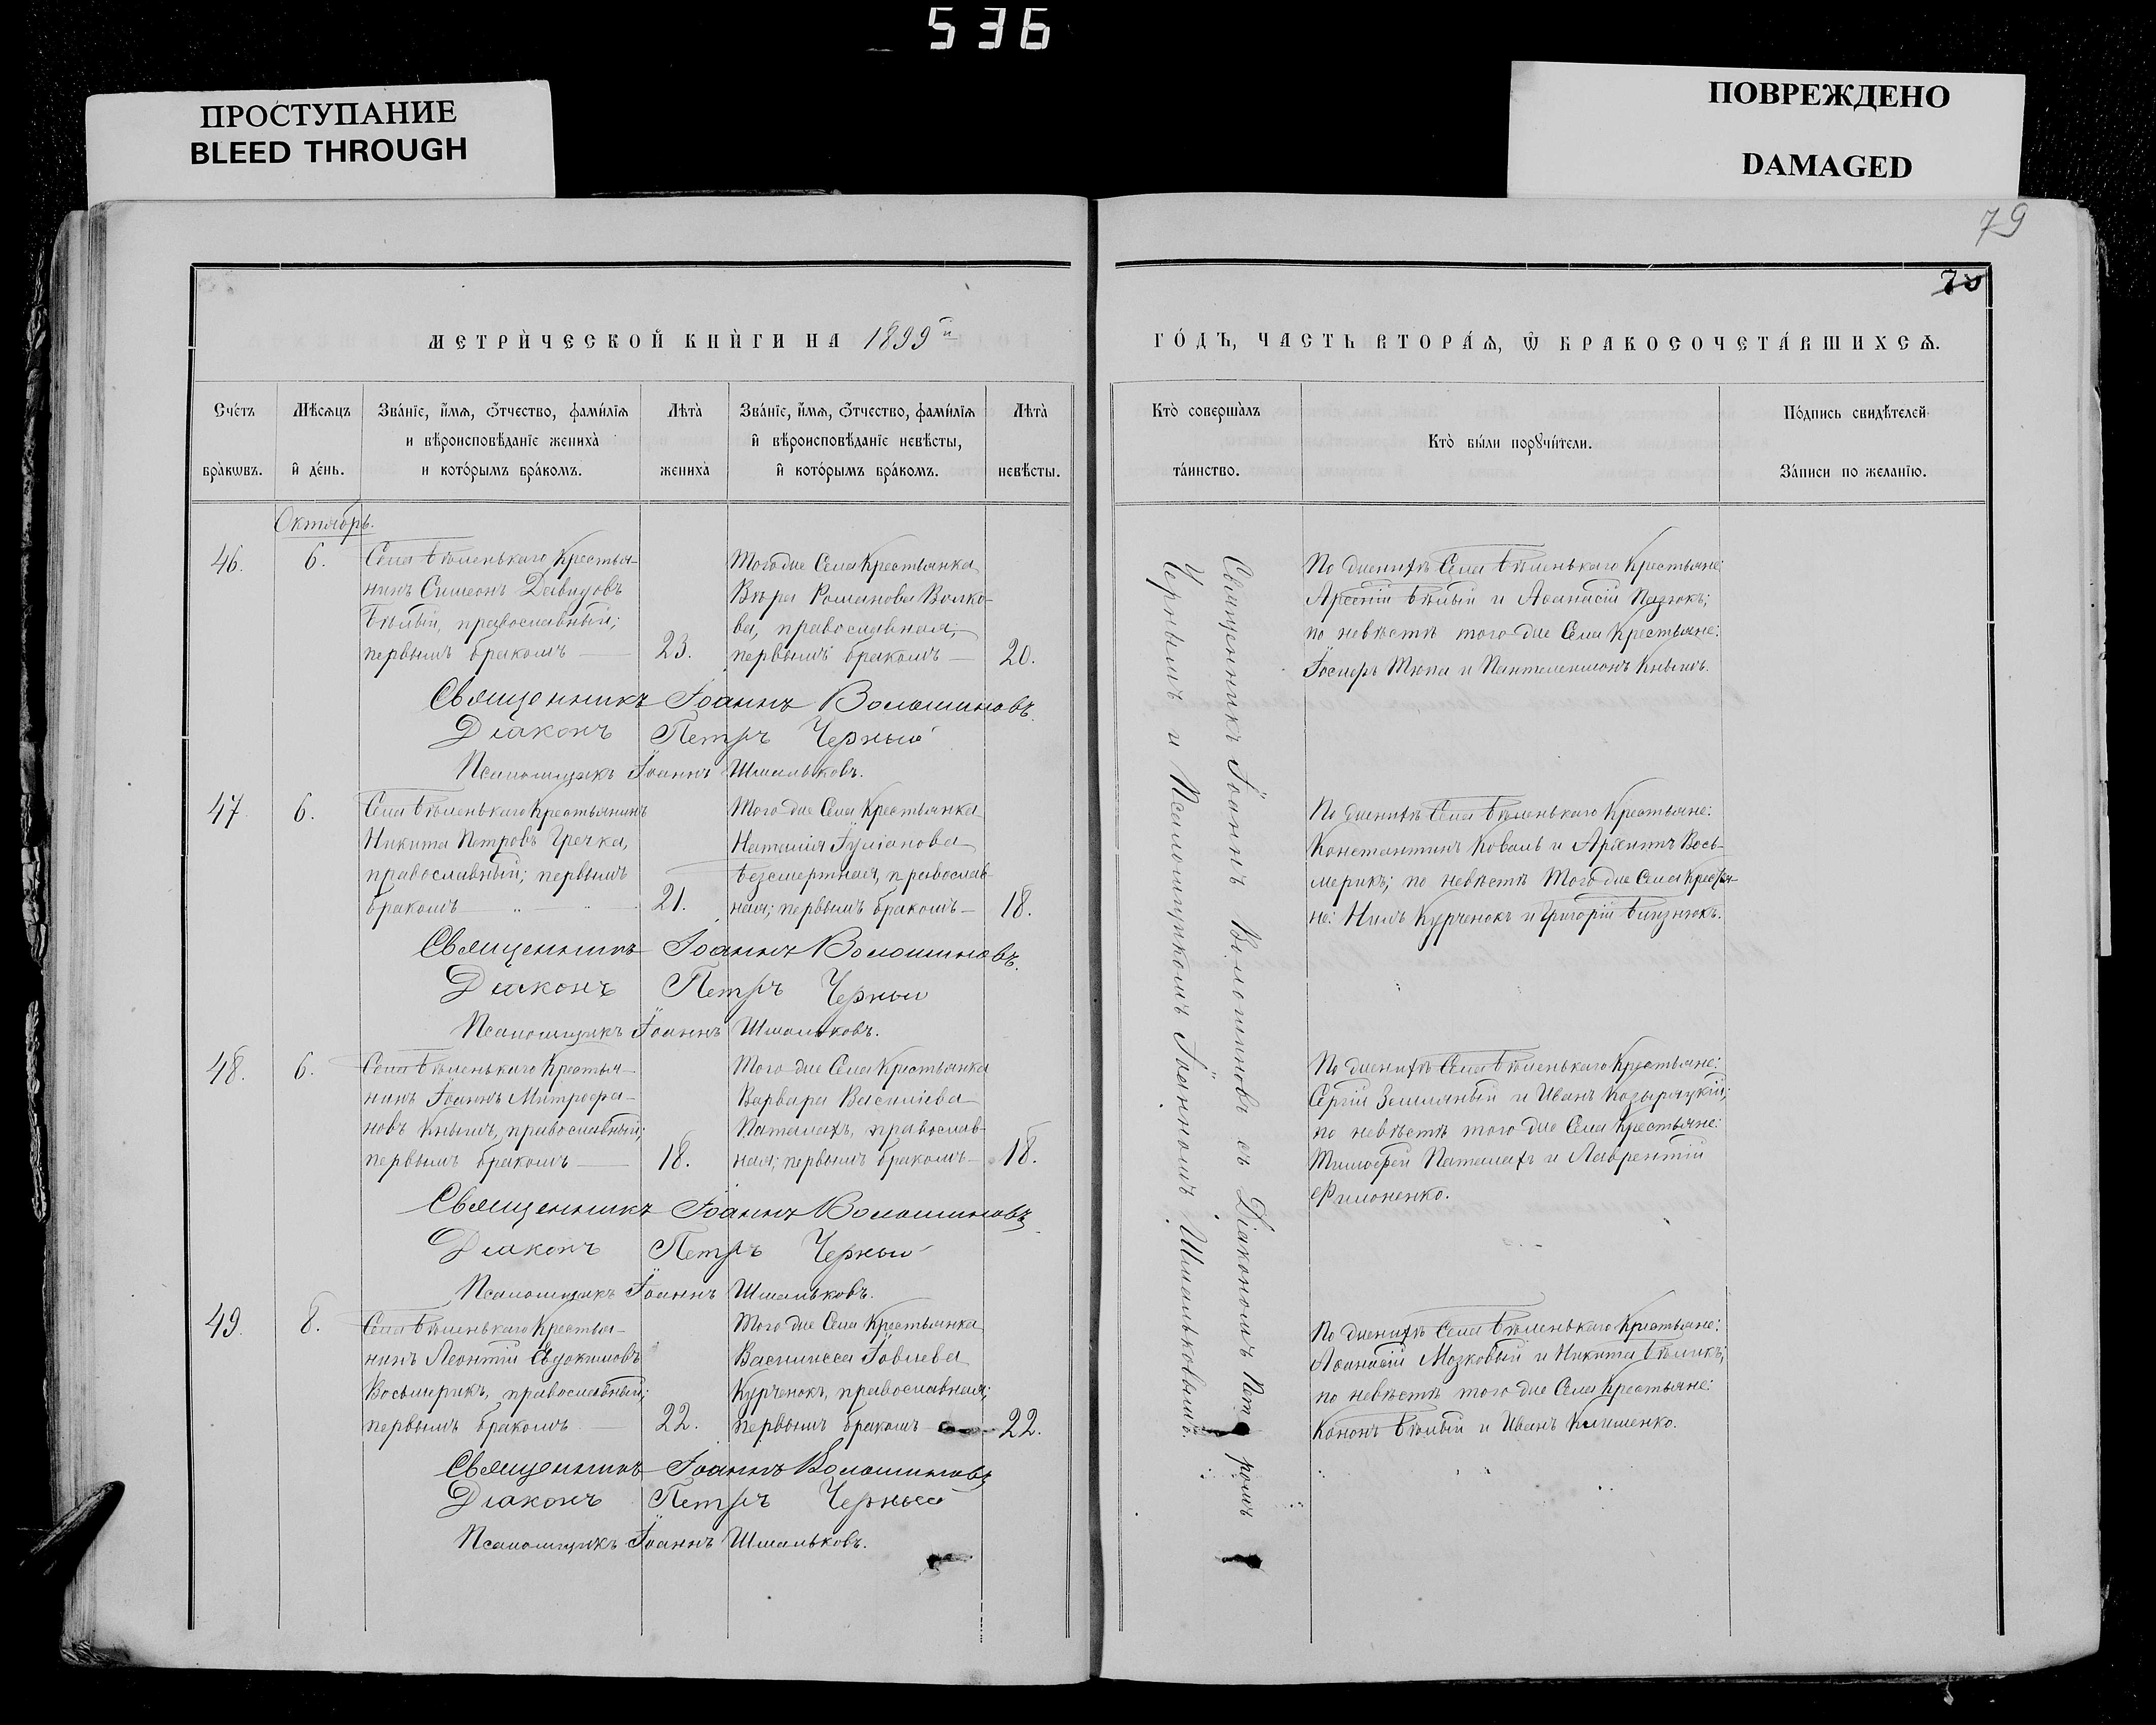 536
ПРОСТУПАНИЕ
BLEED THROUGH
ПОВРЕЖДЕНО
DAMAGED
79
МЕТРИ́ЧЕСКОЙ КНИ́ГИ НА 1899й
Сче́тъ бра́кѡвъ.
Мѣсѧцъ и҆ де́нь.
Зва́нїе, и҆́мѧ, ѻ҆́тчество, фами́лїѧ
и вѣроисповѣ́данїе жениха̀
и кото́рымъ бра́комъ.
Лѣта̀ жениха̀
Зва́нїе, и҆́мѧ, ѻ҆́тчество, фами́лїѧ
и҆ вѣроисповѣ́данїе невѣ́сты,
и҆ кото́рымъ бра́комъ.
Лѣта̀ невѣ́сты.
Октябрь.
46.
6.
Села Бѣленькаго Крестья-
нинъ Симеонъ Давидовъ
Бѣлый, православный;
первымъ бракомъ
23.
Того же Села Крестьянка
Вѣра Романова Волко-
ва, православная;
первымъ бракомъ
20.
Священникъ Іоаннъ Волошиновъ.
Діаконъ Петръ Черный
Псаломщикъ Іоаннъ Шмальковъ.
47
6.
Села Бѣленькаго Крестьянинъ
Никита Петровъ Гречка,
православный; первымъ
бракомъ
21.
Того же Села Крестьянка
Наталія Іуліанова
Безсмертная, православ-
ная; первымъ бракомъ
18.
Священникъ Іоаннъ Волошиновъ.
Діаконъ Петръ Черный
Псаломщикъ Іоаннъ Шмальковъ.
48.
6.
Села Бѣленькаго Крестья-
нинъ Іоаннъ Митрофа-
новъ Кнышъ, православный;
первымъ бракомъ
18.
Того же Села Крестьянка
Варвара Василіева
Паталахъ, православ-
ная; первымъ бракомъ
18.
Священникъ Іоаннъ Волошиновъ
Діаконъ Петръ Черный
Псаломщикъ Іоаннъ Шмальковъ.
49.
8.
Села Бѣленькаго Крестья-
нинъ Леонтій Евдокимовъ
Восьмерикъ, православный;
первымъ бракомъ
22.
Того же Села Крестьянка
Василисса Іовлева
Курченокъ, православная;
первымъ бракомъ
22.
Священникъ Іоаннъ Волошиновъ
Діаконъ Петръ Черный
Псаломщикъ Іоаннъ Шмальковъ.
ГО́ДЪ, ЧАСТЬ ВТОРА́Ѧ, Ѡ҆ БРАКОСОЧЕТА́ВШИХСѦ.
Кто̀ соверша̀лъ та́инство.
Кто̀ бы́ли порꙋчи́тели.
По́дпись свидѣ́телей
За́писи по жела́нїю.
Священникъ Іоаннъ Волошиновъ съ Діакономъ Петромъ
Чернымъ и Псаломщикомъ Іоанномъ Шмальковымъ.
По женихѣ Села Бѣленькаго Крестьяне:
Арсеній Бѣлый и Аѳанасій Пазюкъ;
по невѣстѣ того же Села Крестьяне:
Іосифъ Тюпа и Пантелеимонъ Кнышъ.
По женихѣ Села Бѣленькаго Крестьяне:
Константинъ Коваль и Архипъ Вось-
мерикъ; по невѣстѣ Того же Села Крестья-
не: Нилъ Курченокъ и Григорій Близнюкъ.
По женихѣ Села Бѣленькаго Крестьяне:
Сергій Земляный и Иванъ Козыряцкій;
по невѣстѣ того же Села Крестьяне:
Тимофей Паталахъ и Лаврентій
Филоненко.
По женихѣ Села Бѣленькаго Крестьяне:
Аѳанасій Мозковый и Никита Бѣликъ;
по невѣстѣ того же Села Крестьяне:
Кононъ Бѣлый и Иванъ Клименко.